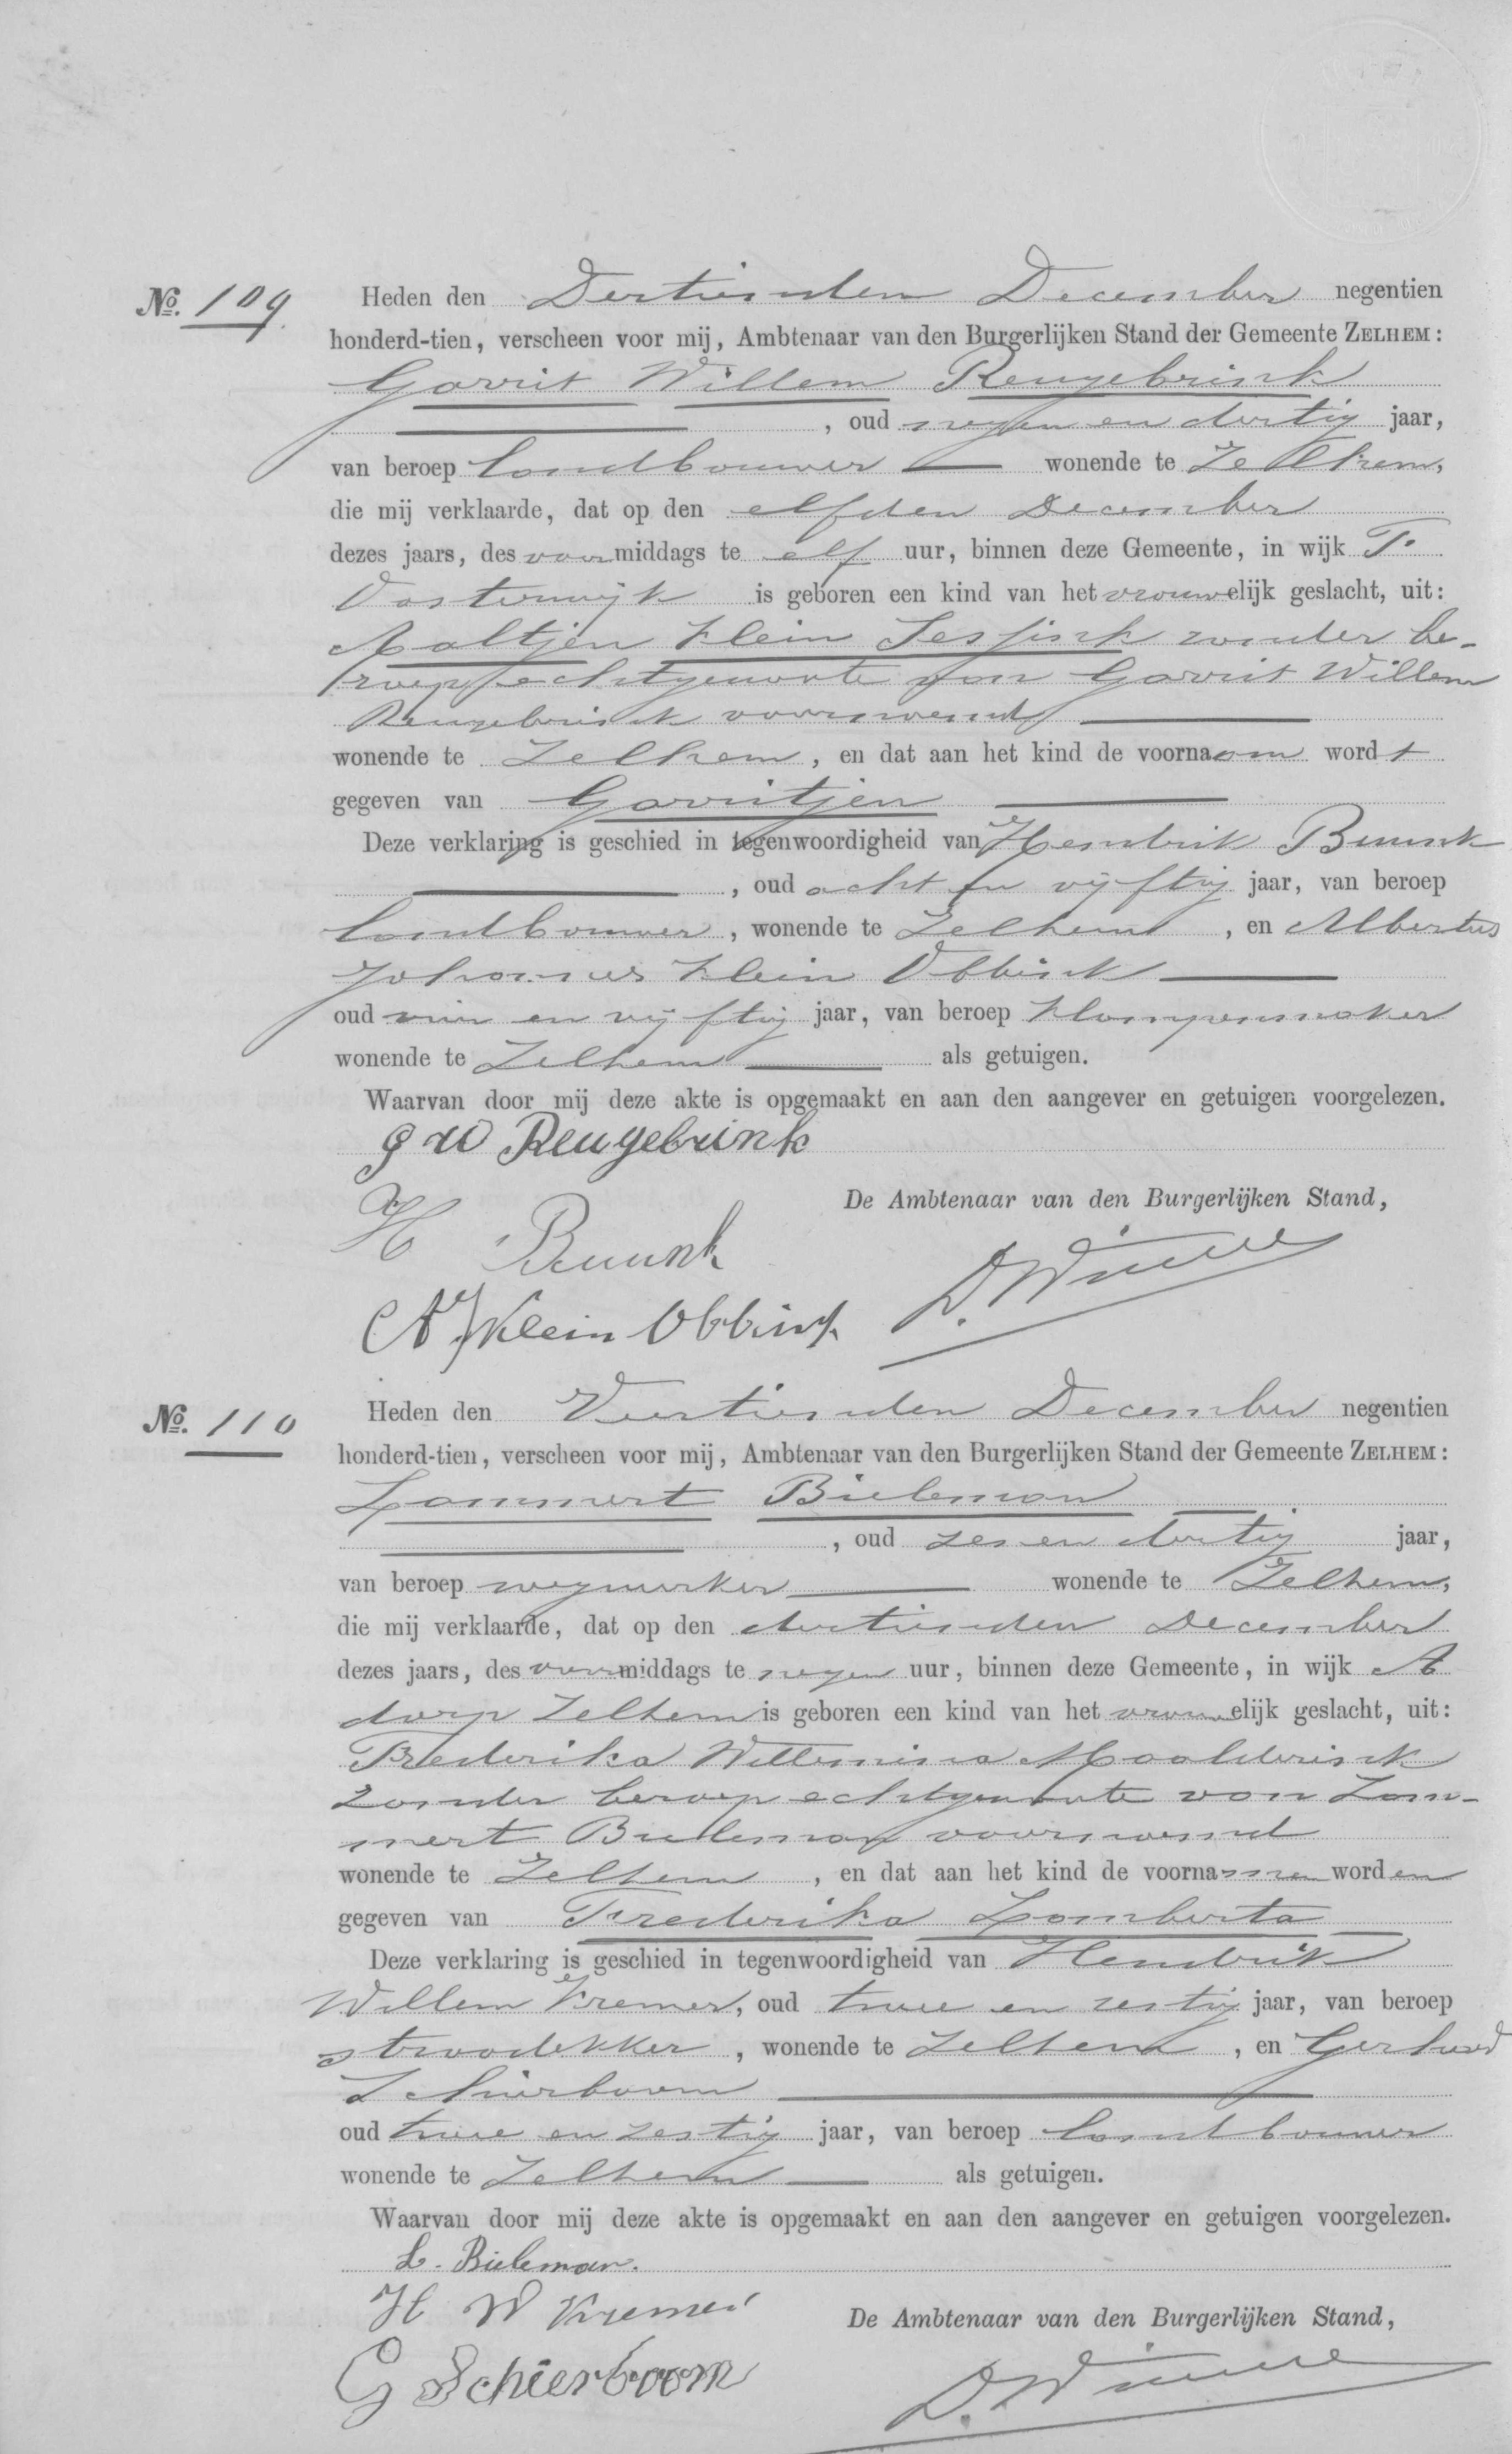 No. 109 Heden den Dertienden December negentien
honderd-tien, verscheen voor mij, Ambtenaar van den Burgerlijken Stand der Gemeente ZELHEM:
Garrit Willem Reugebrink
, oud negen en dertig jaar,
van beroep landbouwer wonende te Zelhem,
die mij verklaarde, dat op den elfden December
dezes jaars, des voormiddags te elf uur, binnen deze Gemeente, in wijk F.
Oosterwijk is geboren een kind van het vrouwelijk geslacht, uit:
Aaltjen Klein Lesfink zonder be-
roep echtgenoote van Garrit Willem
Reugebrink voornoemd
wonende te Zelhem, en dat aan het kind de voornaam wordt
gegeven van Garritjen
Deze verklaring is geschied in tegenwoordigheid van Hendrik Buunk
, oud acht en vijftig jaar, van beroep
landbouwer, wonende te Zelhem, en Albertus
Johannes Klein Obbink
oud vier en vijftig jaar, van beroep klompenmaker
wonende te Zelhem als getuigen.
Waarvan door mij deze akte is opgemaakt en aan den aangever en getuigen voorgelezen.
G W Reugebrink
De Ambtenaar van den Burgerlijken Stand,
H Buunk
A J Klein Obbink
No. 110 Heden den Veertienden December negentien
honderd-tien, verscheen voor mij, Ambtenaar van den Burgerlijken Stand der Gemeente ZELHEM:
Lammert Bieleman
, oud zes en dertig jaar,
van beroep wegwerker wonende te Zelhem,
die mij verklaarde, dat op den dertienden December
dezes jaars, des voormiddags te negen uur, binnen deze Gemeente, in wijk A
dorp Zelhem is geboren een kind van het vrouwelijk geslacht, uit:
Frederika Willemina Maalderink
zonder beroep echtgenoote van Lam-
mert Bieleman voornoemd
wonende te Zelhem, en dat aan het kind de voornamen worden
gegeven van Frederika Lamberta
Deze verklaring is geschied in tegenwoordigheid van Hendrik
Willem Kremer, oud twee en zestig jaar, van beroep
stroodekker, wonende te Zelhem, en Gerhard
Schierboom
oud twee en zestig jaar, van beroep landbouwer
wonende te Zelhem als getuigen.
Waarvan door mij deze akte is opgemaakt en aan den aangever en getuigen voorgelezen.
L. Bieleman.
H W Kremer
De Ambtenaar van den Burgerlijken Stand,
G Schierboom